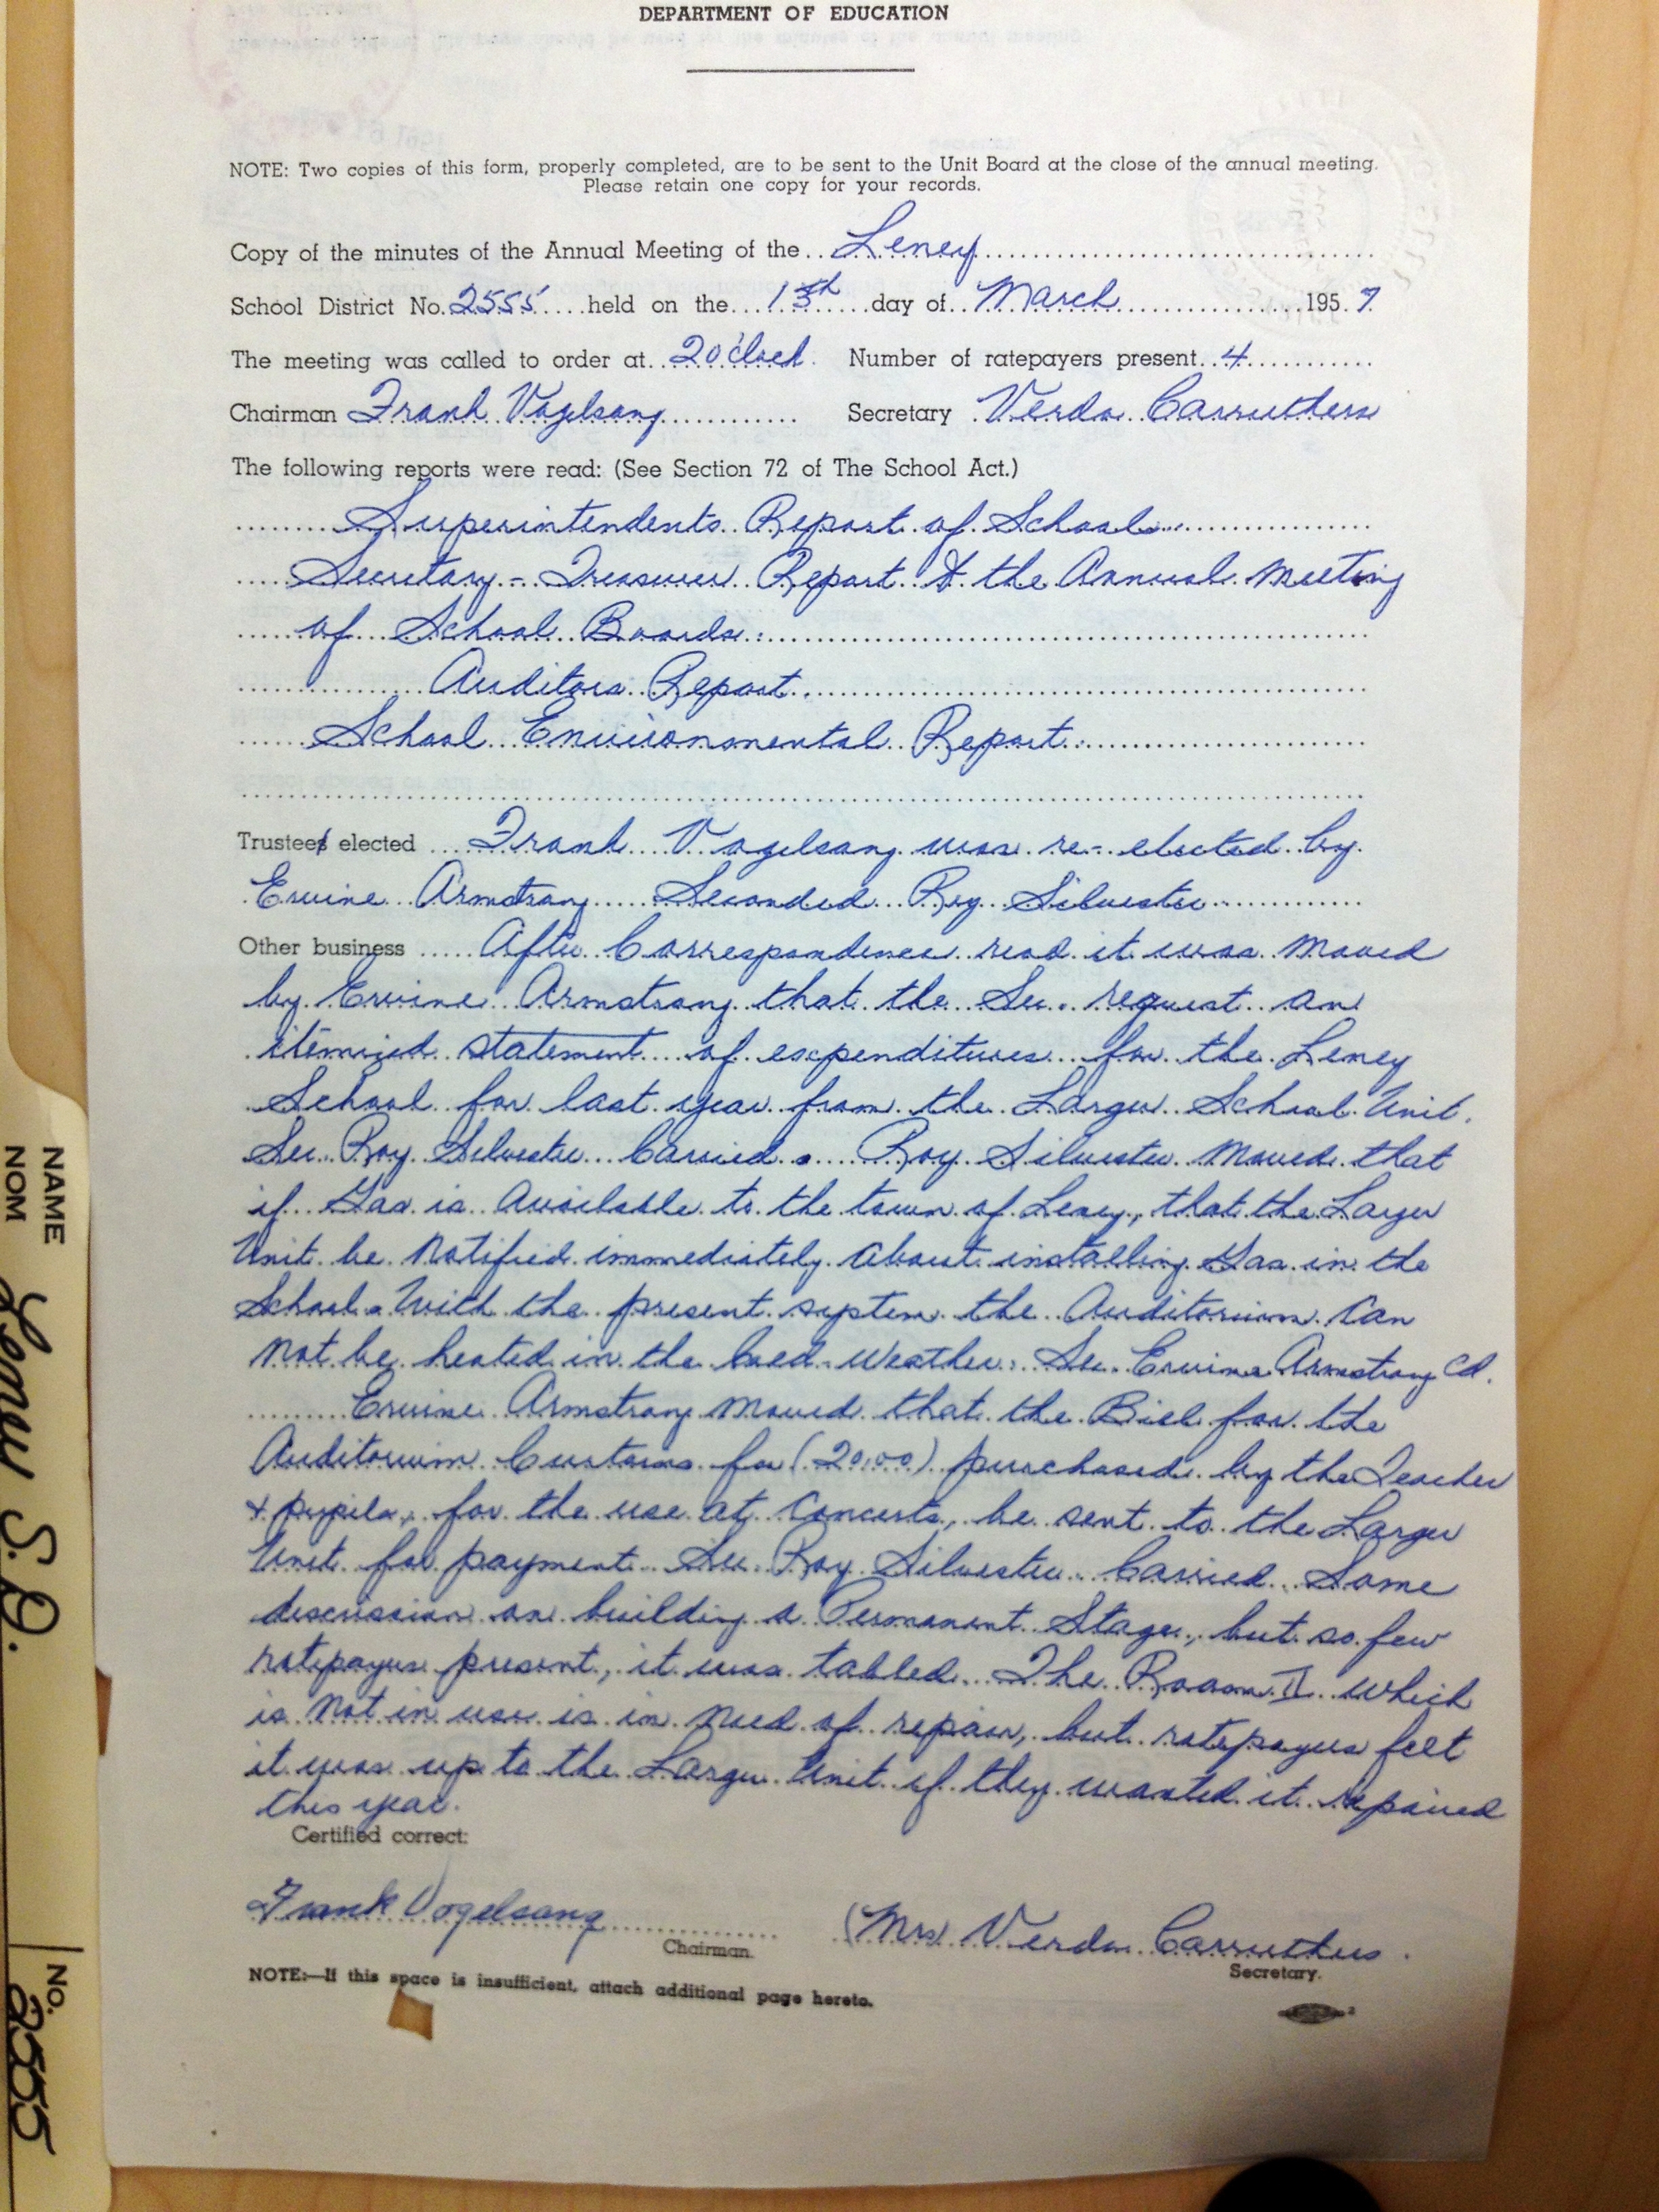 DEPARTMENT OF EDUCATION
NOTE: Two copies of this form, properly completed, are to be sent to the Unit Board at the close of the annual meeting.
Please retain one copy for your records.
Copy of the minutes of the Annual Meeting of the Leney
School District No. 2555 held on the 13th day of March 1957
The meeting was called to order at 2 o'clock. Number of ratepayers present 4
Chairman Frank Vogelsang Secretary Verda Carruthers
The following reports were read: (See Section 72 of The School Act.)
Superintendents Report of School
Secretary - Treasurers Report & the Annual Meeting
of School Boards.
Auditors Report
School Environmental Report.
Trustee elected Frank Vogelsang was re-elected by
Ervine Armstrong Seconded Roy Silvester
Other business After Correspondence read it was Moved
by Ervine Armstrong that the Sec. request an
itemized statement of expenditures for the Leney
School for last year from the Larger School Unit.
Sec. Roy Silvester Carried. Roy Silvester Moved that
if Gas is Available to the town of Leney, that the Larger
Unit be Notified immediately About installing Gas in the
School. With the present system the Auditorium Can
Not be heated in the Cold Weather. Sec. Ervine Armstrong Cd.
Ervine Armstrong Moved that the Bill for the
Auditorium Curtains for (20.00) purchased by the Teacher
& pupils, for the use at Concerts, be sent to the Larger
Unit for payment. Sec. Roy Silvester. Carried. Some
discussion on building a Permanent Stage, but so few
ratepayers present, it was tabled. The Room II which
is Not in use is in Need of repair, but ratepayers felt
it was up to the Larger Unit if they wanted it repaired
this year.
Certified correct:
Frank Vogelsang (Mrs) Verda Carruthers.
Chairman. Secretary.
NOTE:—If this space is insufficient, attach additional page hereto.
NAME
NOM
Leney S.D.
NO. 2555